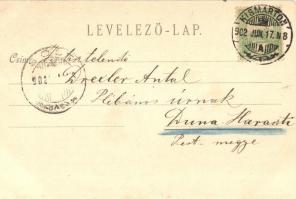 LEVELEZŐ-LAP.
KISMARTON
902 JUN. 17. N 8
A
Tisztelendő
902
Drexler Antal
Plébános úrnak
Duna Haraszti
Pest megye